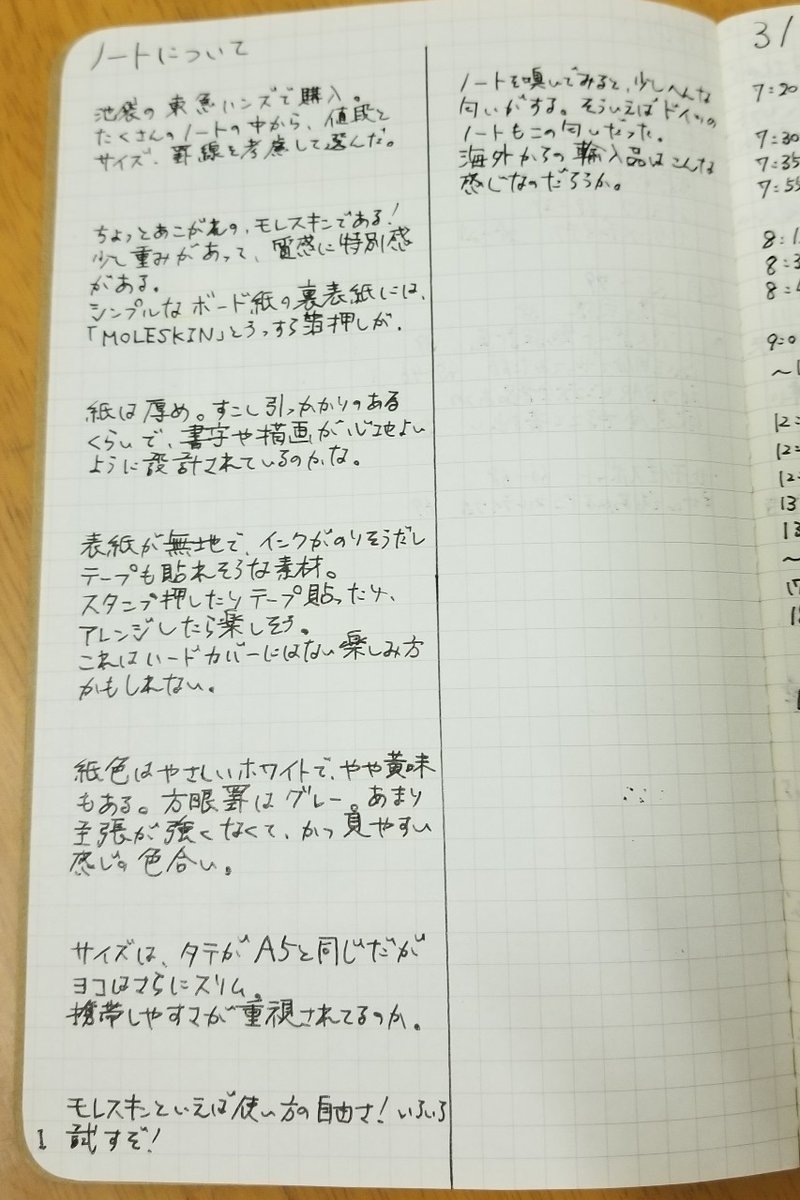 ノートについて
池袋の東急ハンズで購入。
たくさんのノートの中から、値段と
サイズ、罫線を考慮して選んだ。
ちょっとあこがれの、モレスキンである!
少し重みがあって、質感に特別感
がある。
シンプルなボード紙の裏表紙には、
「MOLESKIN」とうっすら箔押しが。
紙は厚め。すこし引っかかりのある
くらいで、書字や描画が心地よい
ように設計されているのかな。
表紙が無地で、インクがのりそうだし
テープも貼れそうな素材。
スタンプ押したりテープ貼ったり、
アレンジしたら楽しそう。
これはハードカバーにはない楽しみ方
かもしれない。
紙色はやさしいホワイトで、やや黄味
もある。方眼罫はグレー。あまり
主張が強くなくて、かつ見やすい
感じの色合い。
サイズは、タテがA5と同じだが
ヨコはさらにスリム。
携帯しやすさが重視されてるのか。
モレスキンといえば使い方の自由さ!いろいろ
試すぞ!
1
ノートを嗅いでみると、少しへんな
匂いがする。そういえばドイツの
ノートもこの匂いだった。
海外からの輸入品はこんな
感じなのだろうか。
3/
7:20
7:30
7:35
7:55